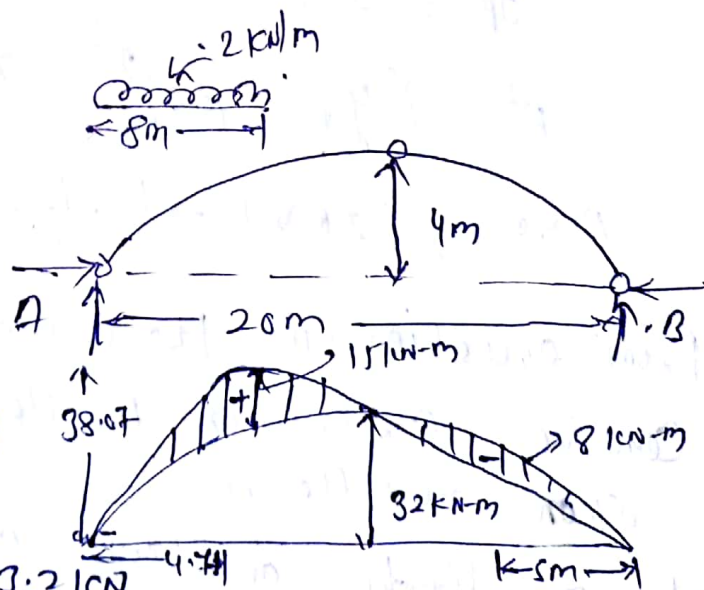 2 KN/m
8m
4m
A
20m
B
15 KN-m
38.07
8 KN-m
32 KN-m
5m
3.2 KN